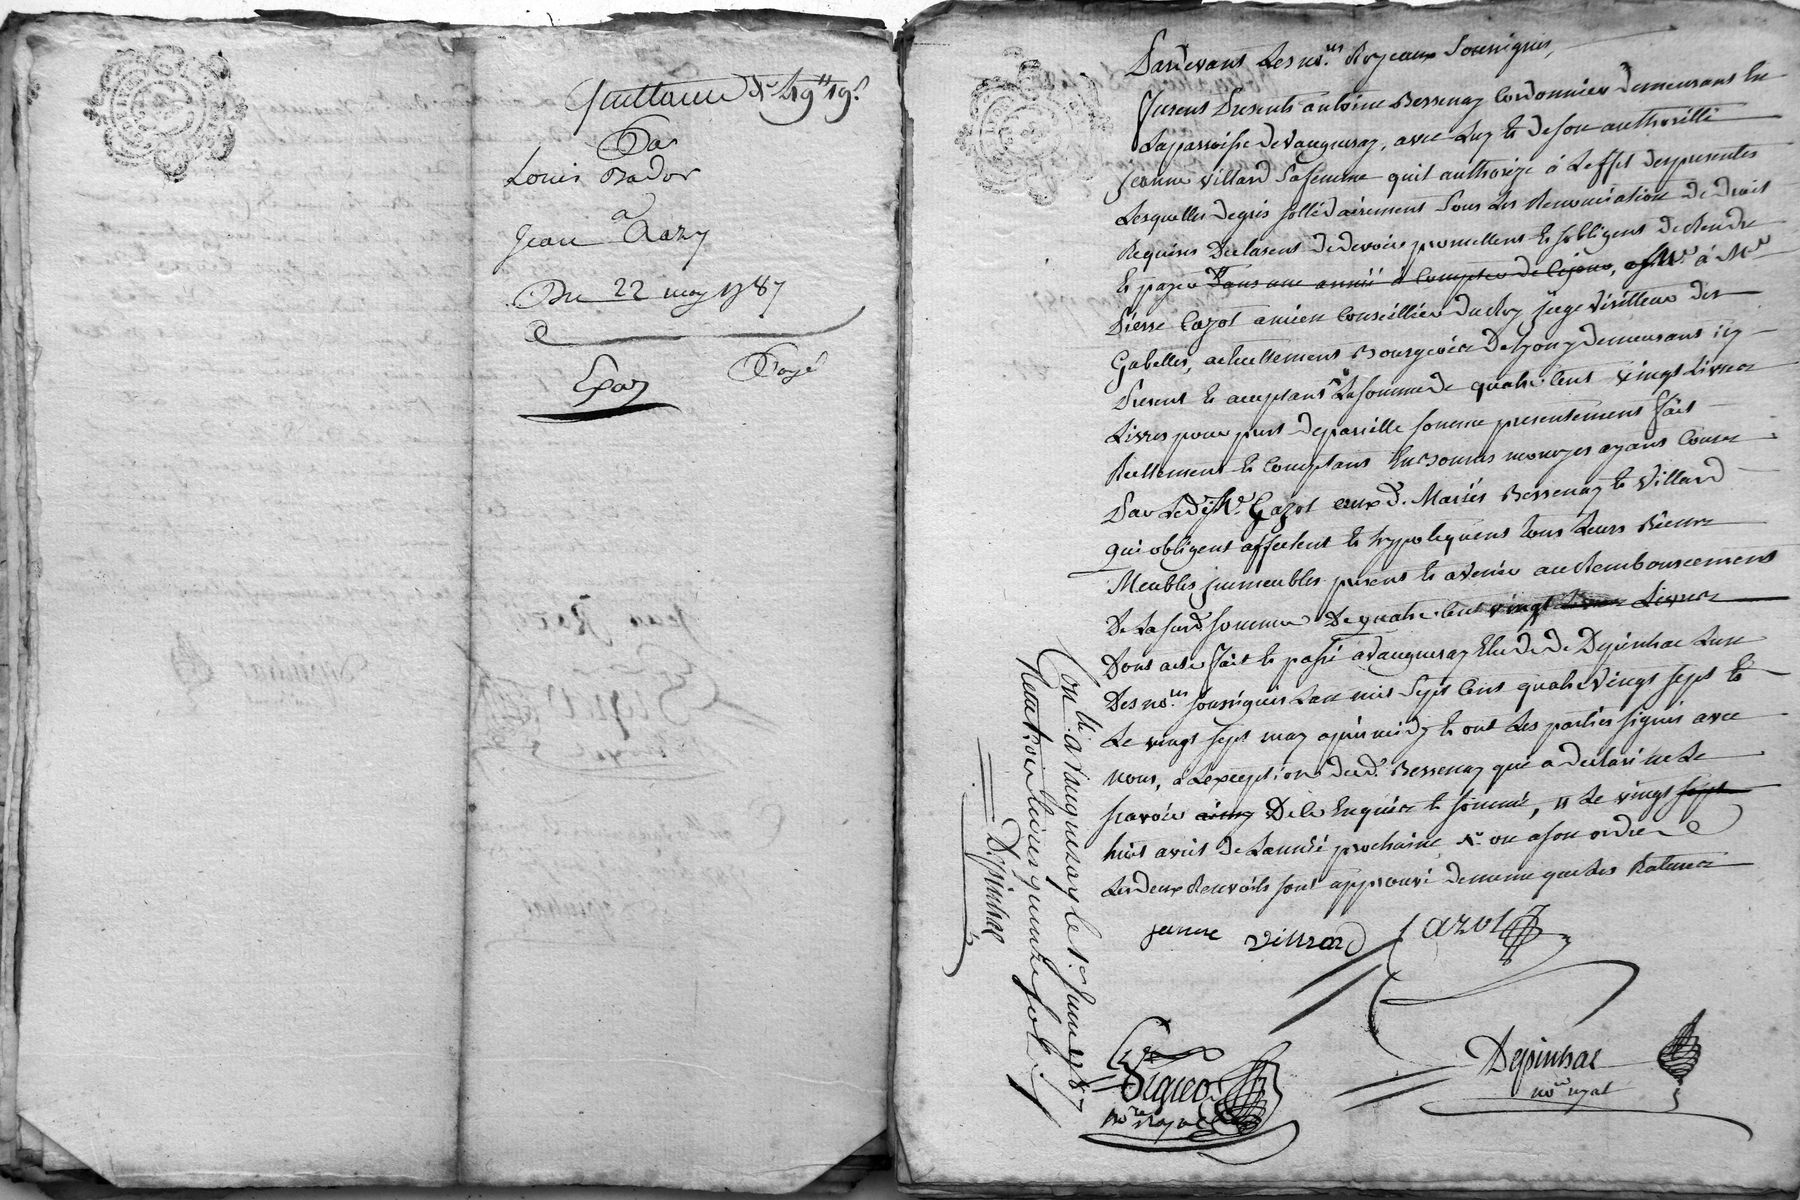 Quittance de 49ᵗᵗ 19ˢ
Par
Louis Bador
a
Jean Razy
Du 22 may 1787
Expéd
Payé
Pardevant Les noʳᵉˢ Royeaux Soussignés,
furent Presents antoine Bessenay Cordonnier demeurant En
Laparroisse de Vaugneray, avec Luy et de son authorité
jeanne Villard Safemme quil authorize à Leffet despresentes
Lesquelles degrés sollidairement sous Les Renonciation de droit
Requises Declarent de devoir promettent et sobligent de Rendre
et payer dans une année à Compter de cejour, à Mʳ
Pierre Cazot ancien Conseillier du Roy juge Visitteur des
Gabelles, actuellement Bourgeois de Lyon y demeurant icy
Present et acceptant La somme de quatre cent vingt Livres
Livres pour prest de pareille somme presentement fait
Reellement et Comptant En bonnes monoyes ayant Cours
Par Led. Sʳ Cazot auxd. Mariés Bessenay et Villard
qui obligent affectent et hypotequent tous Leurs Biens
Meubles jmmeubles present et avenir au Remboursement
De Lasusd. somme De quatre cent vingt Livres
Dont acte fait et passé a Vaugneray Etude de Depinhac Lun
Des noʳᵉˢ soussignés Lan mil sept cent quatre vingt sept et
Le vingt sept may après midy et ont Les parties signés avec
nous, à Lexception dud. Bessenay qui a declaré ne Le
scavoir De ce Enquis et sommé, Le vingt sept
huit avril de Lannée prochaine ou a son ordre
Les deux Renvois sont approuvé de meme que les Ratures
jeanne Villard
Cazot
Depinhac
noʳᵉ royal
noʳᵉ Royal
Conˡˡᵉ a Vaugneray le 1ᵉʳ Juin 1787
Reçu trois livres quinze sols
Depinhac